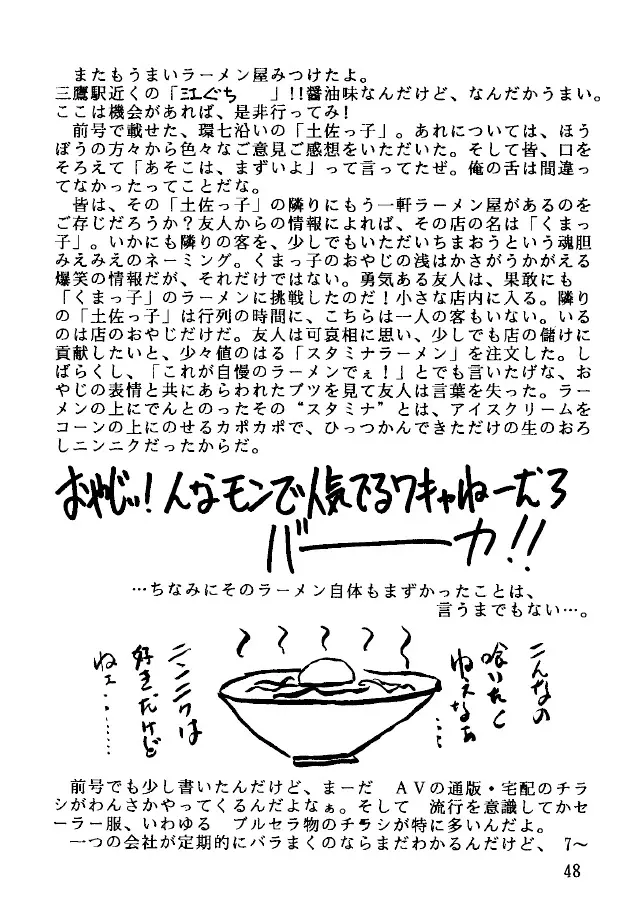 またもうまいラーメン屋みつけたよ。
三鷹駅近くの「江ぐち　」!!醤油味なんだけど、なんだかうまい。
ここは機会があれば、是非行ってみ!
前号で載せた、環七沿いの「土佐っ子」。あれについては、ほう
ぼうの方々から色々なご意見ご感想をいただいた。そして皆、口を
そろえて「あそこは、まずいよ」って言ってたぜ。俺の舌は間違っ
てなかったってことだな。
皆は、その「土佐っ子」の隣りにもう一軒ラーメン屋があるのを
ご存じだろうか?友人からの情報によれば、その店の名は「くまっ
子」。いかにも隣りの客を、少しでもいただいちまおうという魂胆
みえみえのネーミング。くまっ子のおやじの浅はかさうかがえる
爆笑の情報だが、それだけではない。勇気ある友人は、果敢にも
「くまっ子」のラーメンに挑戦したのだ!小さな店内に入る。隣り
の「土佐っ子」は行列の時間に、こちらは一人の客もいない。いる
のは店のおやじだけだ。友人は可哀相に思い、少しでも店の儲けに
貢献したいと、少々値のはる「スタミナラーメン」を注文した。し
ばらくし、「これが自慢のラーメンでぇ!」とでも言いたげな、お
やじの表情と共にあらわれたブツを見て友人は言葉を失った。ラー
メンの上にでんとのったその“スタミナ”とは、アイスクリームを
コーンの上にのせるカポカポで、ひっつかんできただけの生のおろ
しニンニクだったからだ。
おやじッ!んなモンで人気でるワキャねーだろ
バーーカ!!
…ちなみにそのラーメン自体もまずかったことは、
言うまでもない…。
こんなの
喰いたく
ねえなぁ…
ニンニクは
好きだけど
ねェ………
前号でも少し書いたんだけど、まーだ　AVの通販・宅配のチラ
シがわんさかやってくるんだよなぁ。そして　流行を意識してかセ
ーラー服、いわゆる　ブルセラ物のチラシが特に多いんだよ。
一つの会社が定期的にバラまくのならまだわかるんだけど、7〜
48